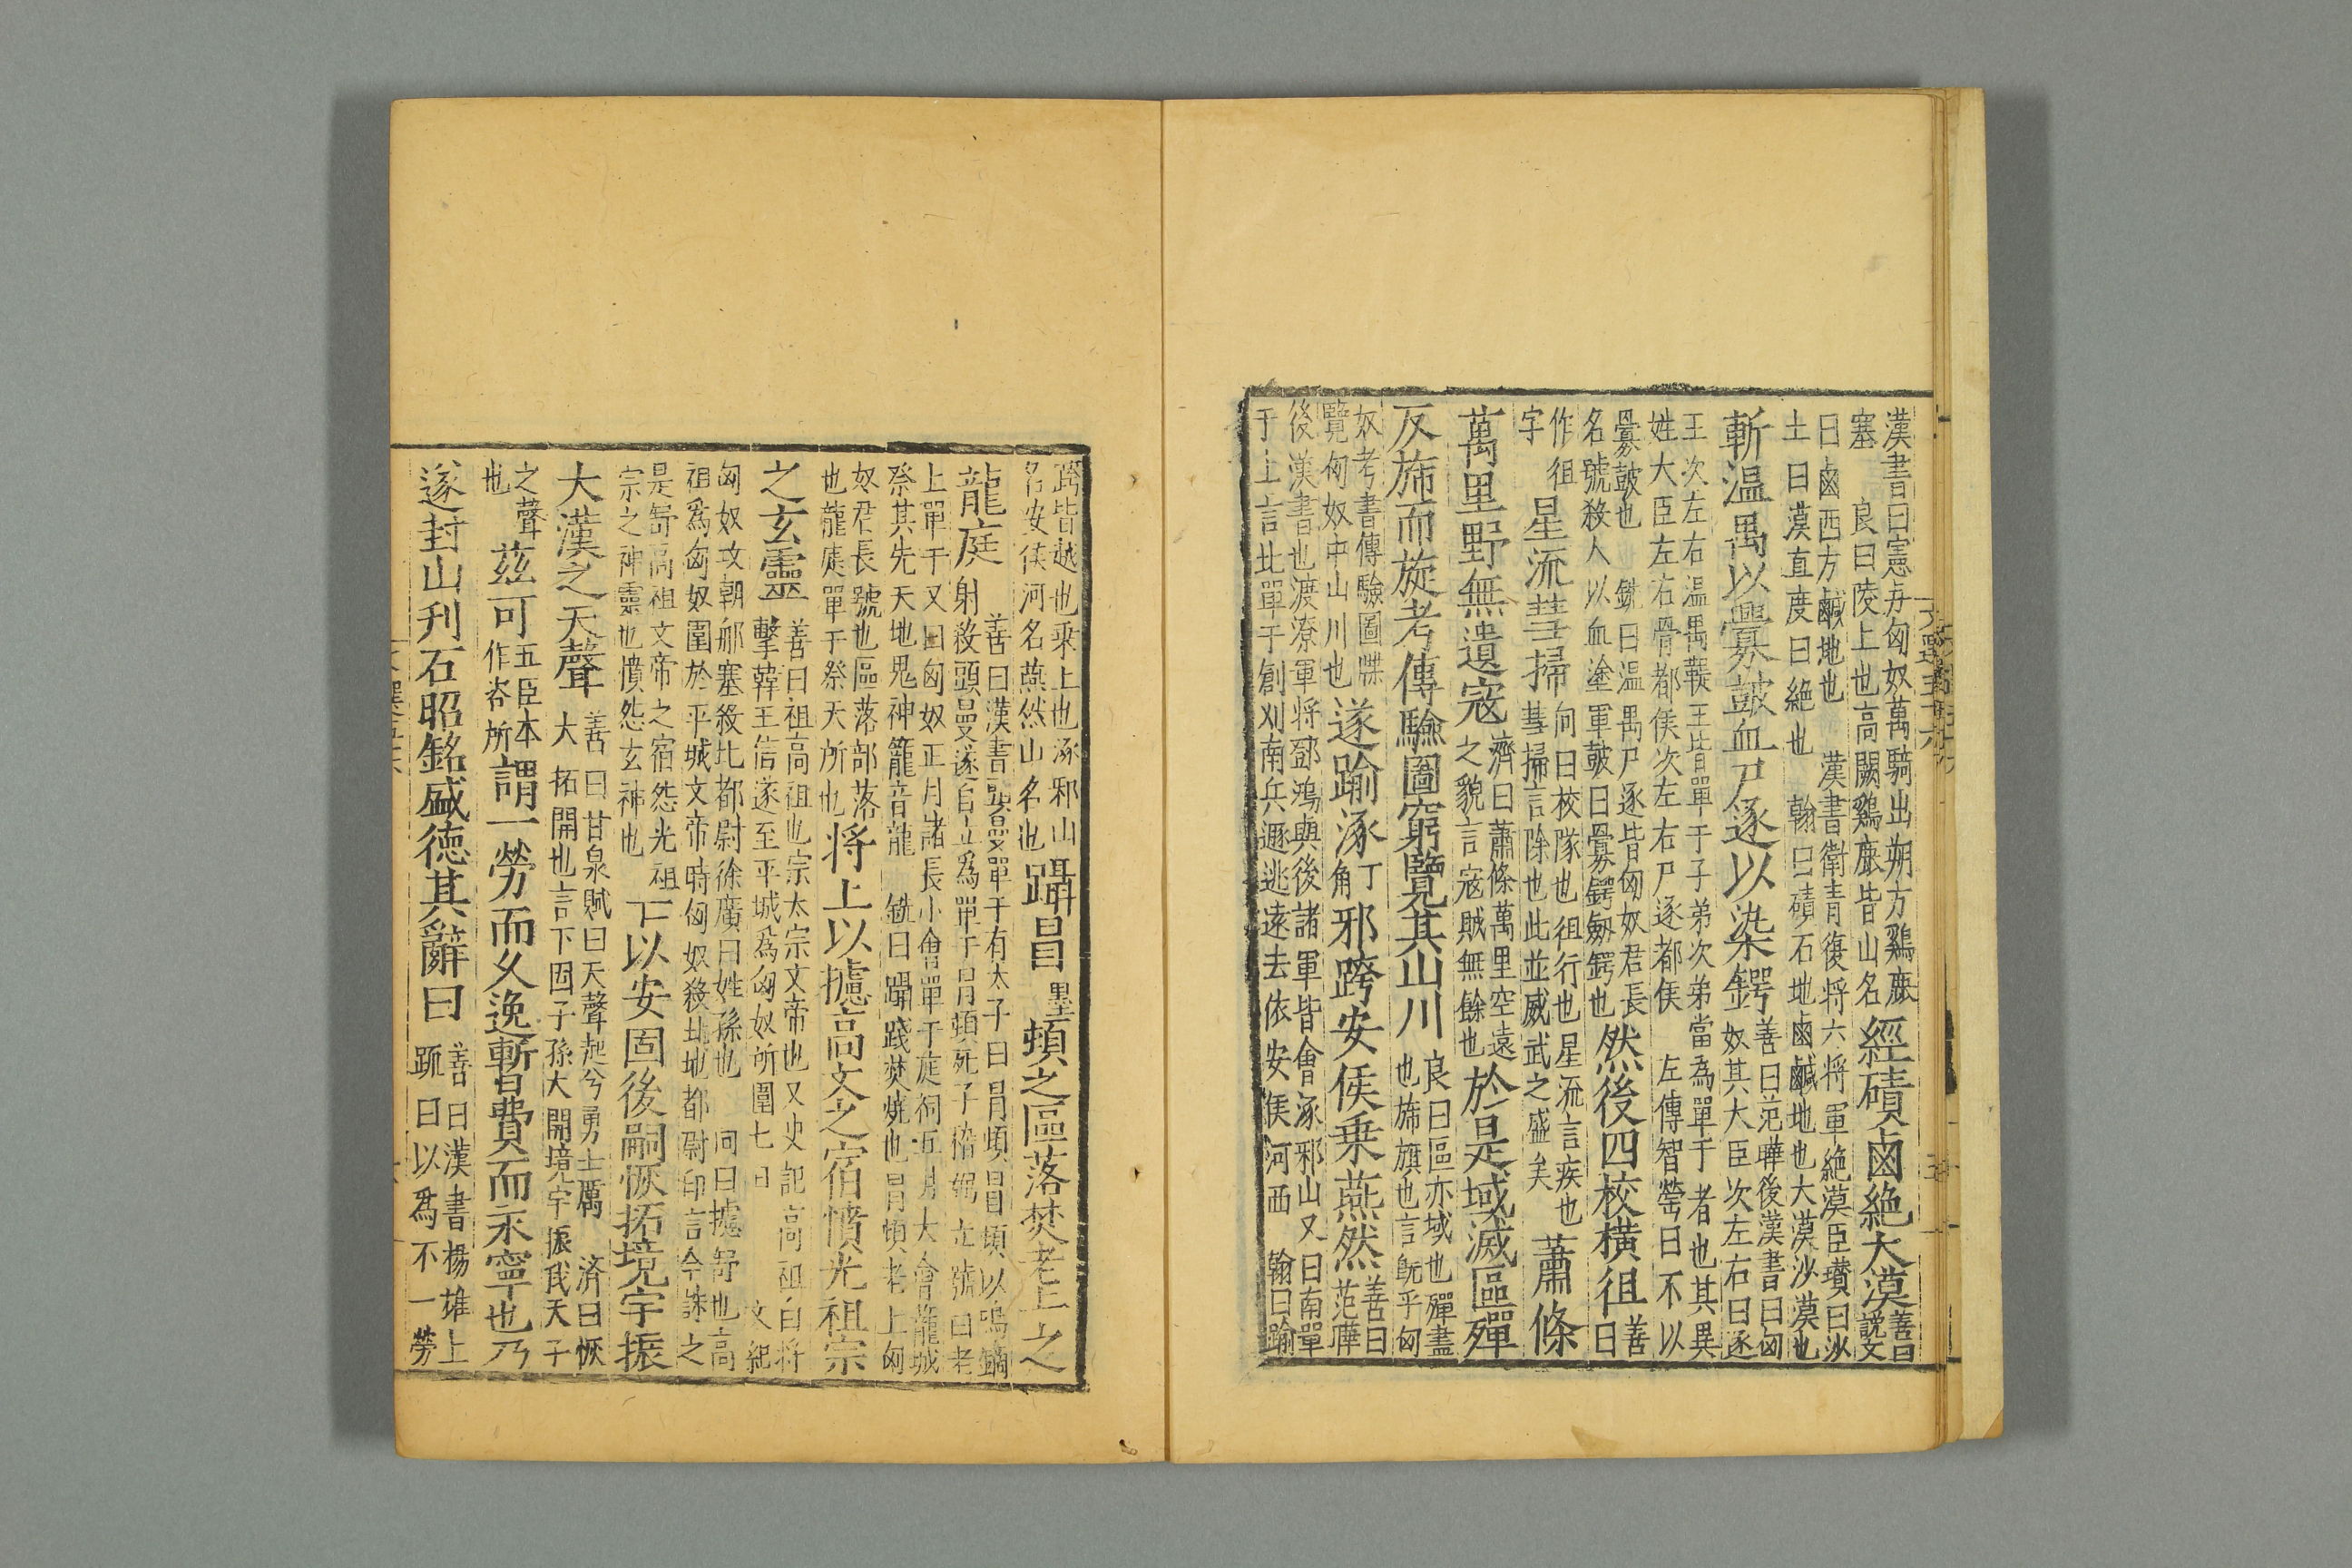 漢書曰憲与匈奴萬騎出朔方鷄鹿
塞 良曰陵上也高闕鷄鹿皆山名
經磧鹵絶大漠
善曰
說文
曰鹵西方鹹地也 漢書衛青復将六将軍絶漠臣瓚曰沙
土曰漠直度曰絶也 翰曰磧石地鹵鹹地也大漠沙漠也
斬温禺以釁鼓血尸逐以染鍔
善曰范曄後漢書曰匈
奴其大臣次左右曰逐
王次左右温禺鞮王皆單于子弟次弟當為單于者也其異
姓大臣左右骨都侯次左右尸逐都侯 左傳智罃曰不以
釁鼓也 銑曰温禺尸逐皆匈奴君長
名號殺人以血塗軍鼓曰釁鍔劔鍔也
然後四校横徂
善
曰
作徂
字
星流彗掃
向曰校隊也徂行也星流言疾也
彗掃言除也此並威武之盛矣
蕭條
萬里野無遺寇
濟曰蕭條萬里空遠
之貌言寇賊無餘也
於是域滅區殫
反斾而旋考傳驗圖窮覽其山川
良曰區亦域也殫盡
也斾旗也言旣乎匈
奴考書傳驗圖牒
覽匈奴中山川也
遂踰涿
丁
角
邪跨安侯乗燕然
善曰
范曄
後漢書也渡遼軍将鄧鴻與後諸軍皆會涿邪山又曰南單
于上言北單于創刈南兵遯逃遠去依安侯河西 翰曰踰
跨皆越也乗上也涿邪山
名安侯河名燕然山名也
躡冒
墨
頓之區落焚老上之
龍庭
善曰漢書頭曼單于有太子曰冒頓冒頓以鳴鏑
射殺頭曼遂自立為單于冒頓死子稽粥立號曰老
上單于又曰匈奴正月諸長小會單于庭祠五月大會蘢城
祭其先天地鬼神蘢音龍 銑曰躡踐焚燒也冒頓老上匈
奴君長號也區落部落
也龍庭單于祭天所也
将上以攄高文之宿憤光祖宗
之玄靈
善曰祖高祖也宗太宗文帝也又史記高祖自将
擊韓王信遂至平城為匈奴所圍七日 文紀
匈奴攻朝那塞殺北都尉徐廣曰姓孫也 向曰攄舒也高
祖為匈奴圍於平城文帝時匈奴殺北地都尉印言今誅之
是舒高祖文帝之宿怨光祖
宗之神靈也憤怨玄神也
下以安固後嗣恢拓境宇振
大漢之天聲
善曰甘泉賦曰天聲起兮勇士厲 濟曰恢
大拓開也言下固子孫大開境宇振我天子
之聲
也
兹可
五臣本
作咨
所謂一勞而久逸暫費而永寧也乃
遂封山刋石昭銘盛德其辭曰
善曰漢書楊雄上
䟽曰以為不一勞